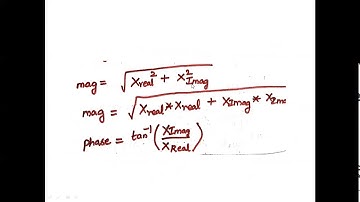 mag = √(Xreal² + X²Imag)
mag = √(Xreal * Xreal + XImag * XIm
phase = tan⁻¹(XImag / XReal)